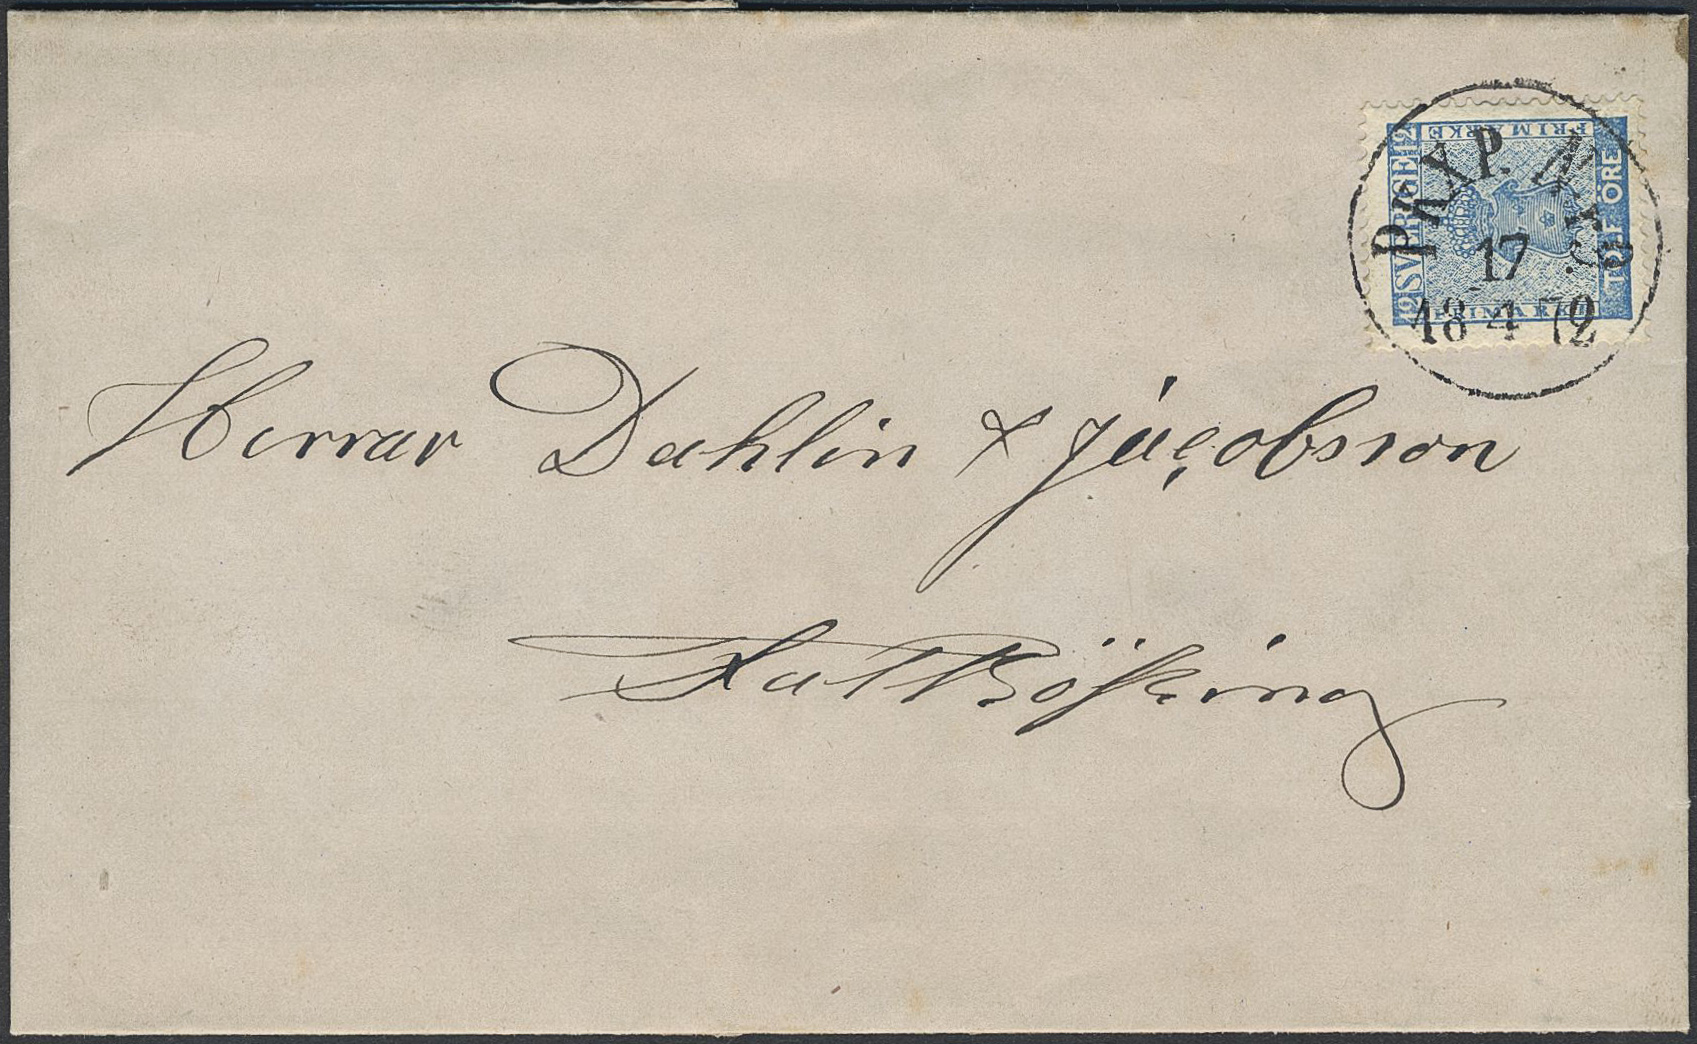 PKXP. N:o 3
17
18 4 72
12 SVERIGE 12
FRIMÄRKE
TOLF ÖRE
FRIMÄRKE
Herrar Dahlin & Jacobsson
Falköping